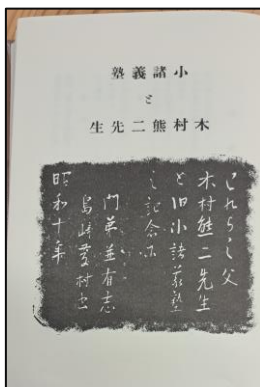 小諸義塾
と
木村熊二先生
われらの父
木村熊二先生
と旧小諸義塾
の記念に
門弟並有志
島崎藤村書
昭和十年